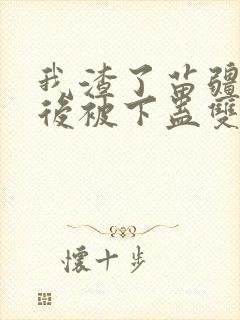 我渣了苗疆
後被下蠱雙
懷十步